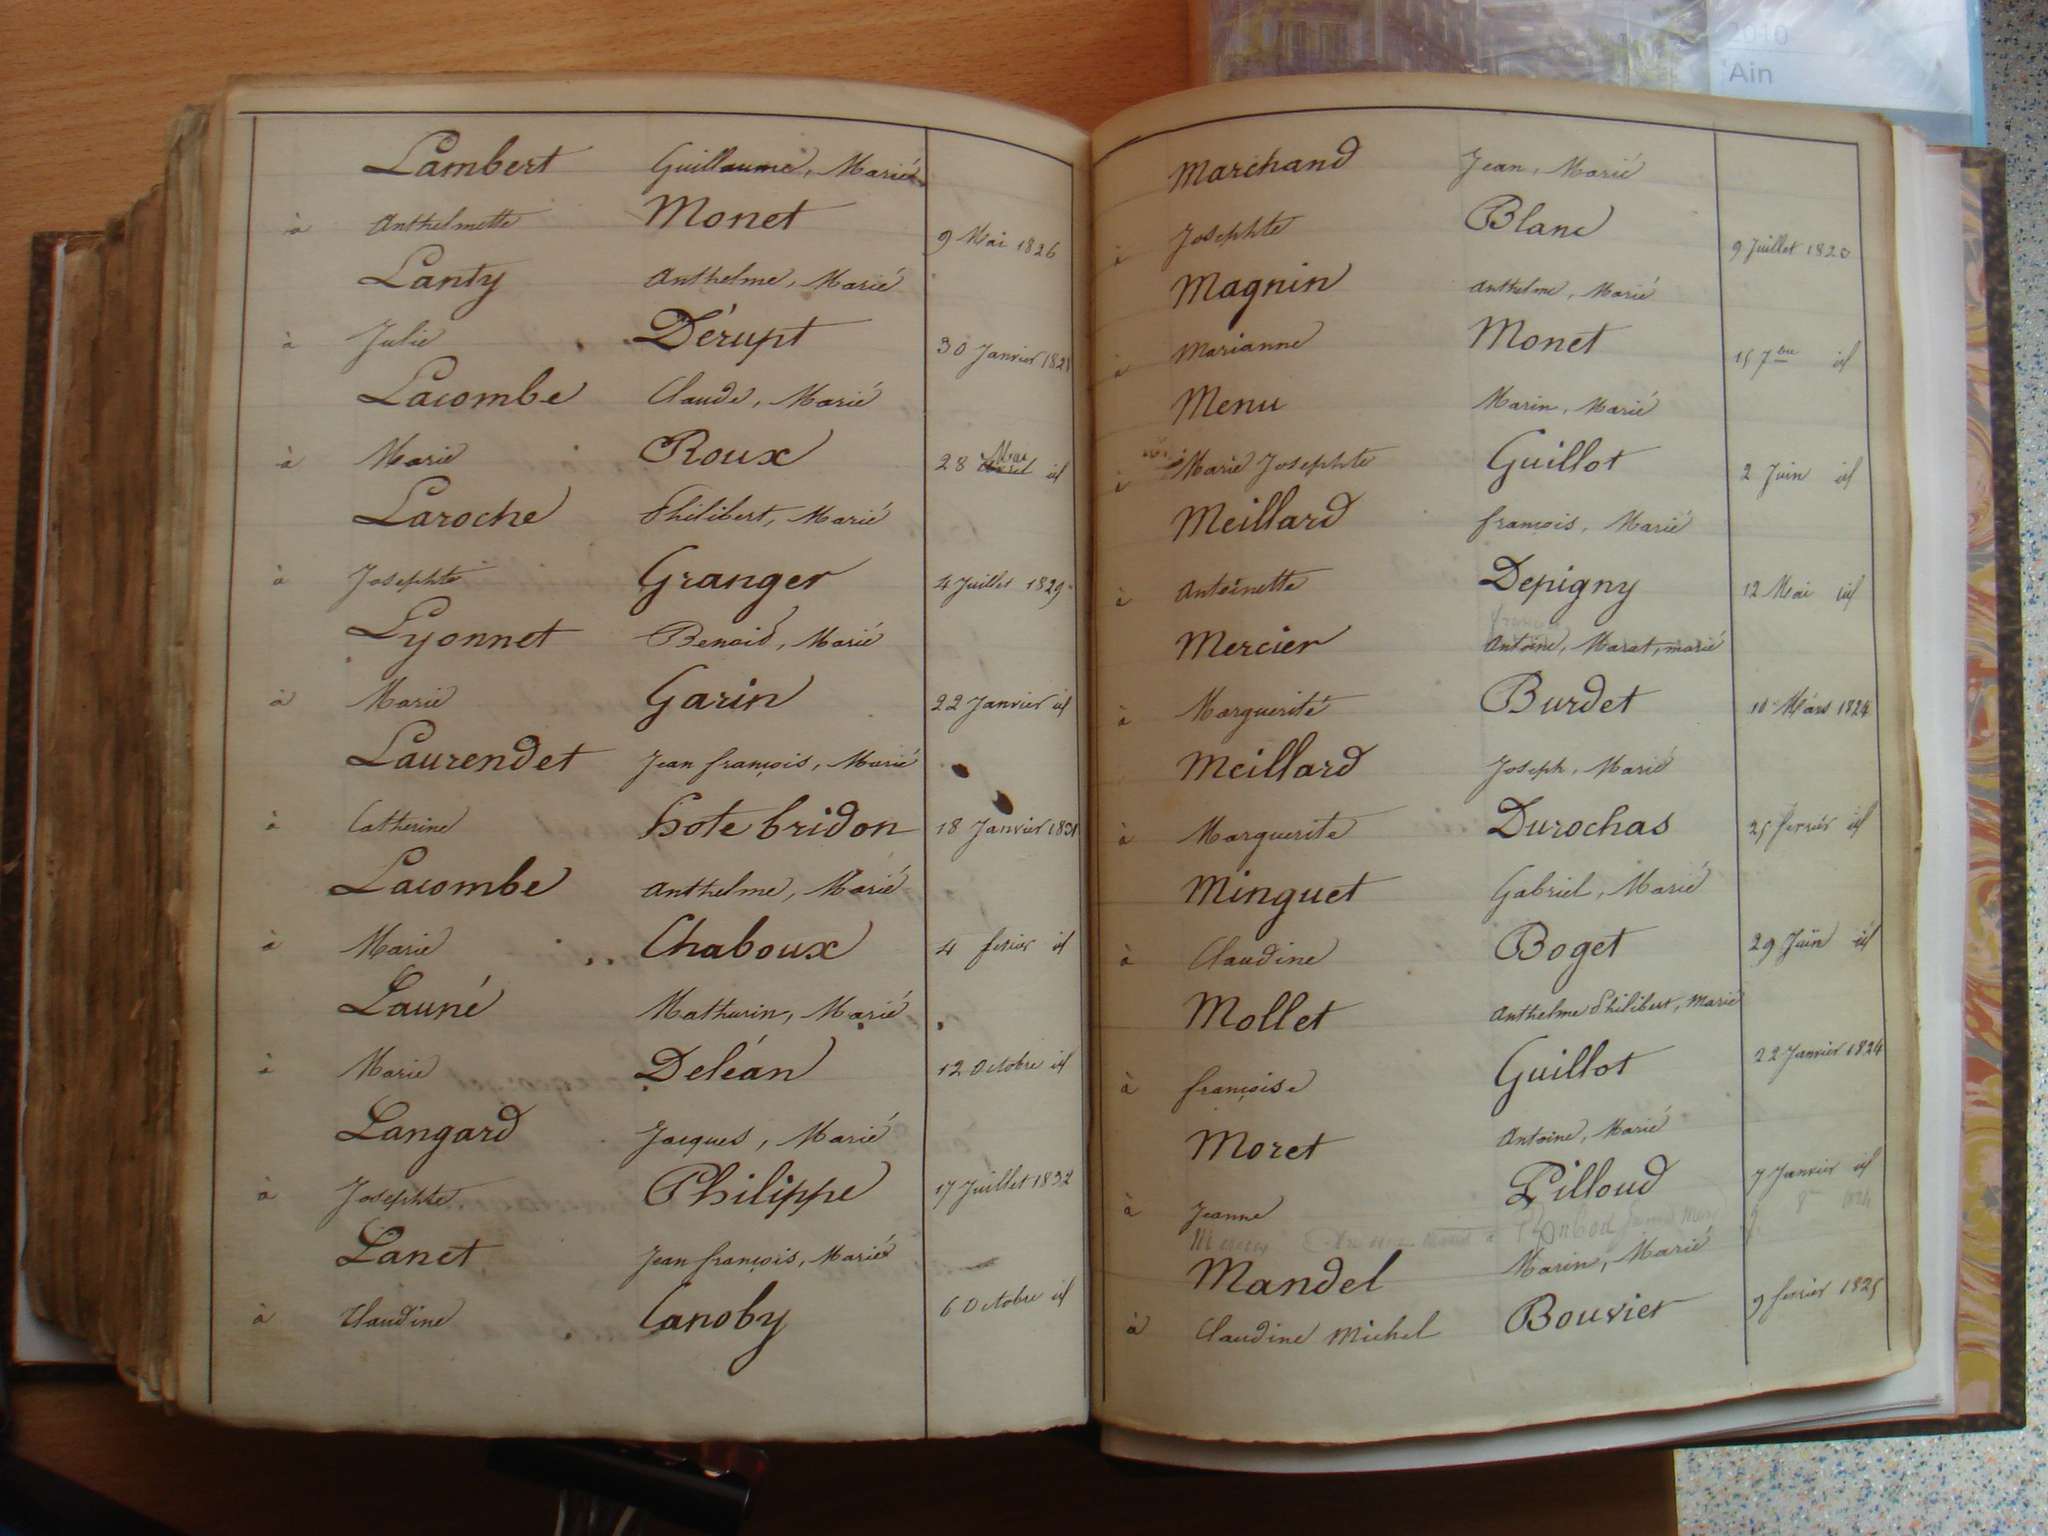 2010
Ain
Lambert Guillaume, Marié
à Anthelmette Monet 9 Mai 1826
Lanty Anthelme, Marié
à Julie Dérupt 30 Janvier 1828
Lacombe Claude, Marié
à Marie Roux 28 Mai id
Laroche Philibert, Marié
à Josephte Granger 4 Juillet 1829
Lyonnet Benoid, Marié
à Marie Garin 22 Janvier id
Laurendet Jean françois, Marié
à Catherine hote bridon 18 Janvier 1831
Lacombe Anthelme, Marié
à Marie Chaboux 4 fevier id
Launé Mathurin, Marié
à Marie Deléan 12 Octobre id
Langard Jacques, Marié
à Josephte Philippe 17 Juillet 1832
Lanet Jean françois, Marié
à Claudine Canoby 6 Octobre id
Marchand Jean, Marié
à Josephte Blanc 9 Juillet 1820
Magnin Anthelme, Marié
à Marianne Monet 15 7bre id
Menu Marin, Marié
à Marie Josephte Guillot 2 Juin id
Meillard françois, Marié
à Antoinette Depigny 12 Mai id
Mercier Antoine, Marat, marié
à Marguerite Burdet 10 Mars 1824
Meillard Joseph, Marié
à Marguerite Durochas 25 fevrier id
Minguet Gabriel, Marié
à Claudine Boget 29 Juin id
Mollet Anthelme Philibert, Marié
à françoise Guillot 22 Janvier 1824
Moret Antoine, Marié
à Jeanne Pilloud 7 Janvier id
Mandel Marin, Marié
à Claudine Michel Bouvier 9 fevrier 1825